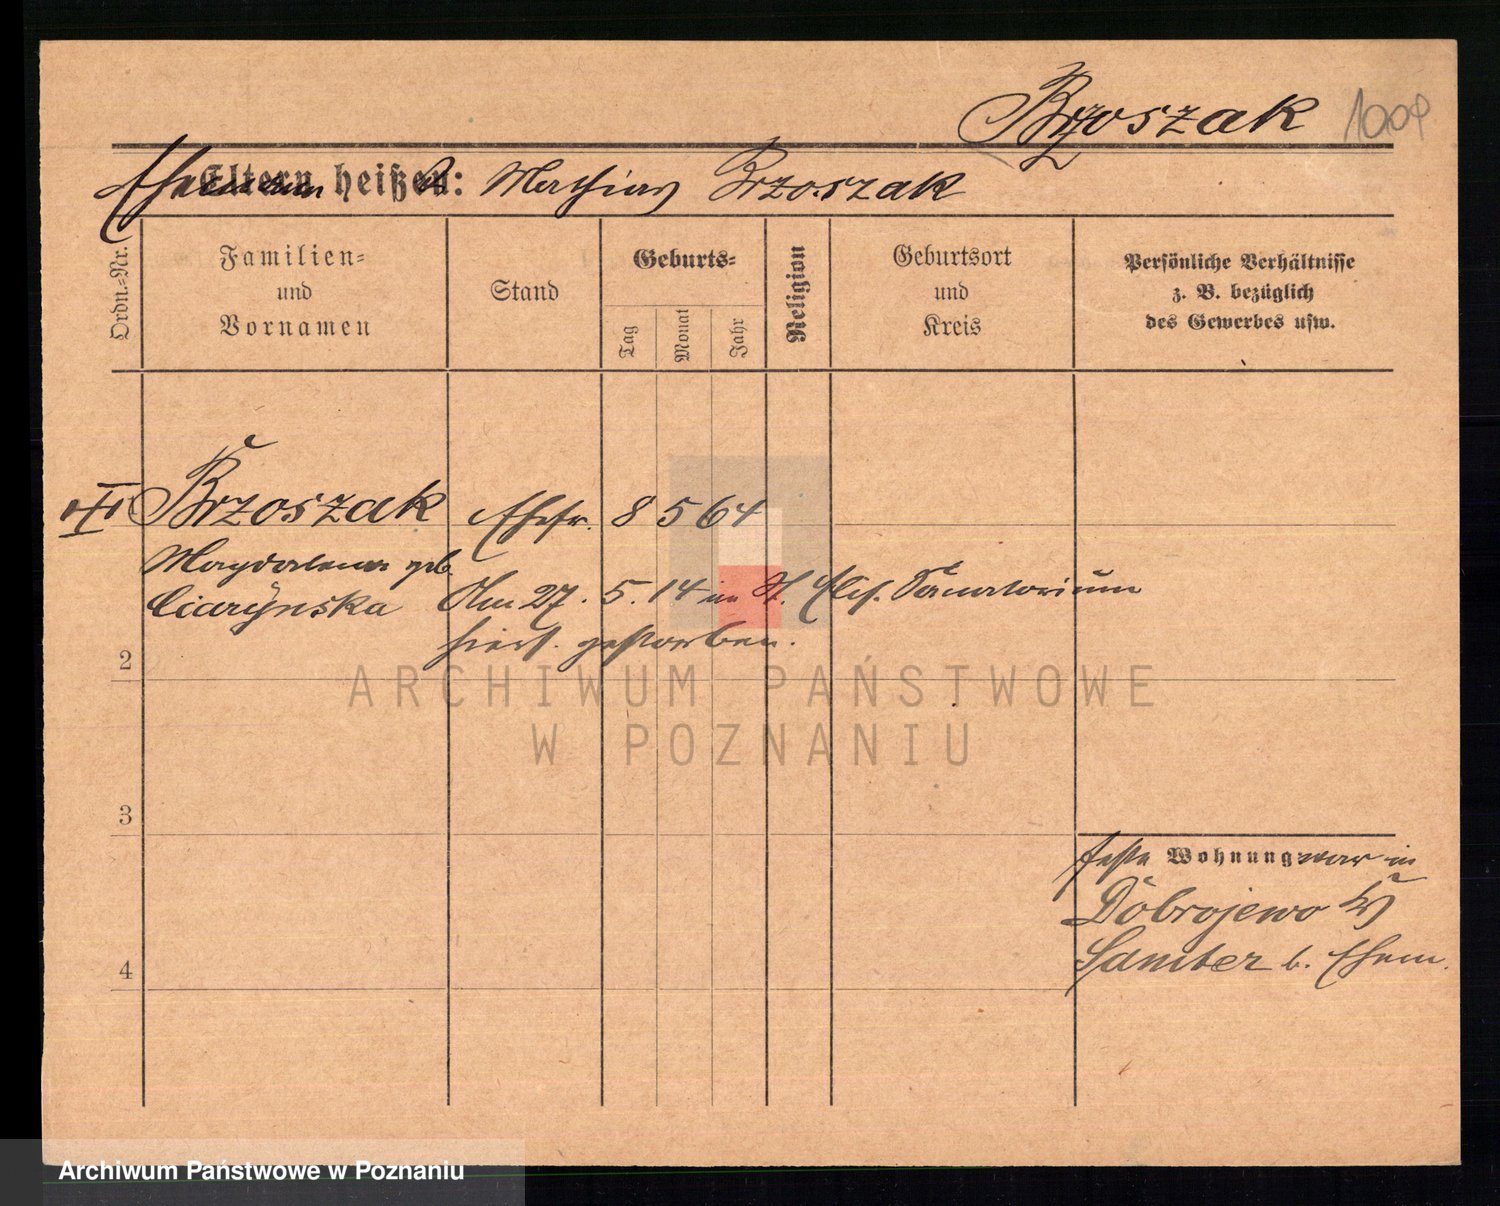 Brzoszak 1009
Ehemann heißen: Mathias Brzoszak
Ordn.=Nr.
Familien=
und
Vornamen
Stand
Geburts=
Tag
Monat
Jahr
Religion
Geburtsort
und
Kreis
Persönliche Verhältnisse
z. B. bezüglich
des Gewerbes usw.
Brzoszak Ehefr. 8 5 64
Magdalena geb.
Ciarynska Am 27. 5. 14 in St. Elis. Sanatorium
hiers. gestorben.
2
ARCHIWUM PAŃSTWOWE
W POZNANIU
3
feste Wohnung war in
Dobrojewo Kr
Samter b. Ehem.
4
Archiwum Państwowe w Poznaniu